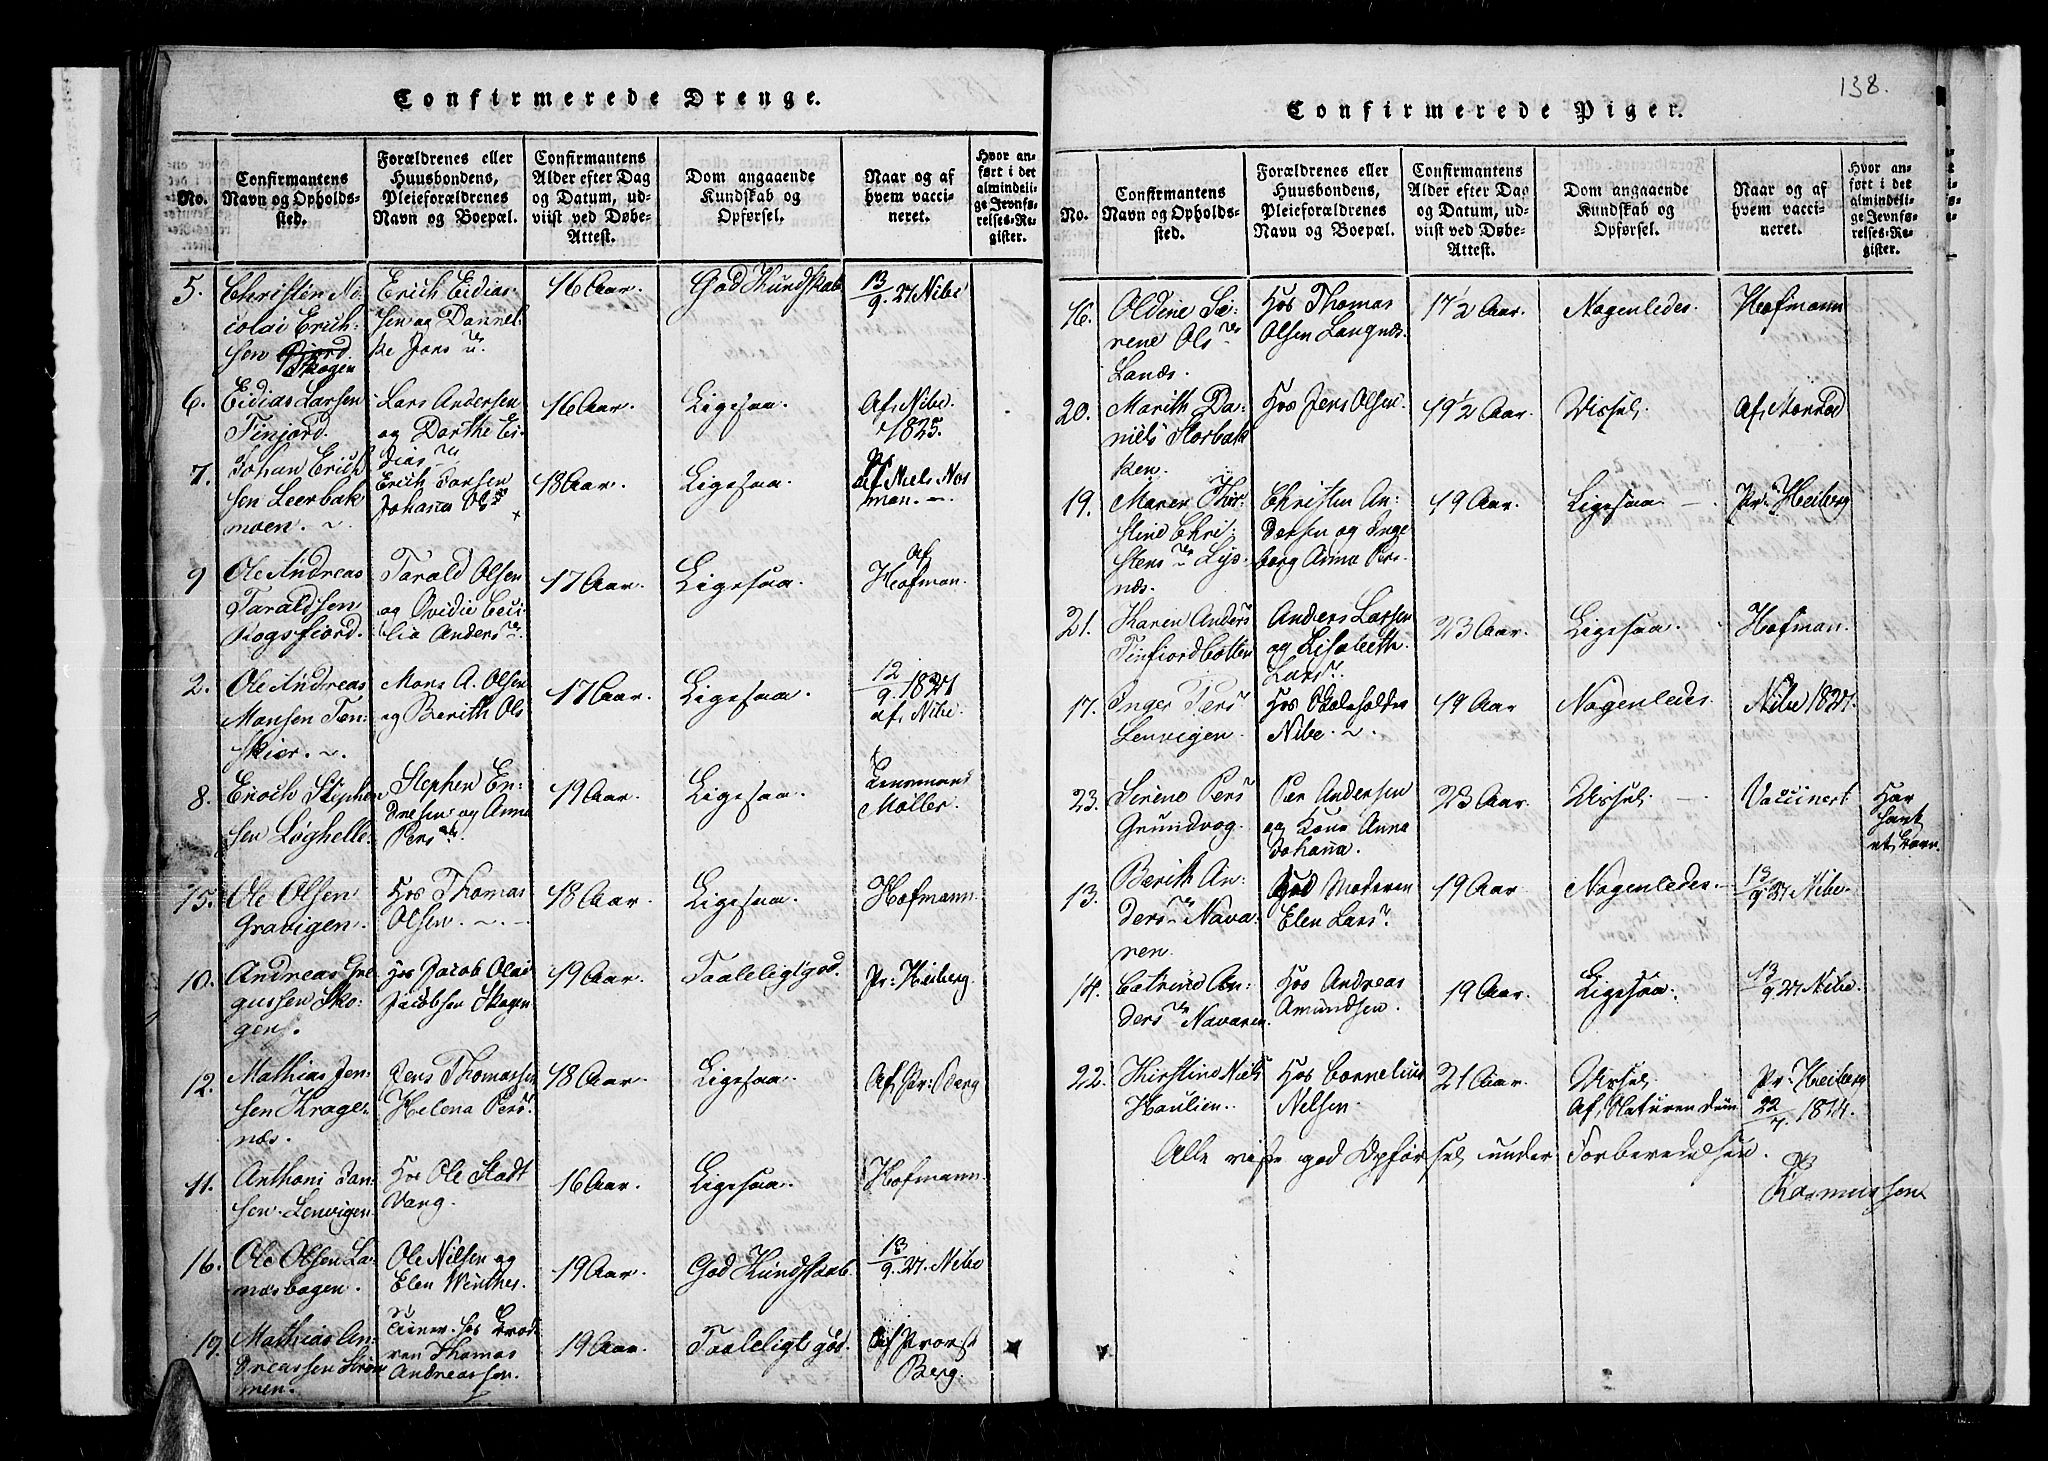 138.
Confirmerede Drenge.
No.
Confirmantens
Navn og Opholds-
sted.
Forældrenes eller
Huusbondens,
Pleieforældrenes
Navn og Boepæl.
Confirmantens
Alder efter Dag
og Datum, ud-
viist ved Døbe-
Attest.
Dom angaaende
Kundskab og
Opførsel.
Naar og af
hvem vacci-
neret.
Hvor an-
ført i det
almindeli-
ge Jevnfø-
relses-Re-
gister.
5.
Christen Ni-
colai Erich-
sen
Skogen
Erich Eidias-
sen og Dannel-
ke Jans
16 Aar.
God Kundskab
13/9. 27 Nibe
6.
Eidias Larsen
Finjord.
Lars Andersen
og Dorthe Ei-
dias
16 Aar.
Ligesaa.
Af Nibe.
1825.
7.
Johan Erich
sen Leerbak
moen.
Erich Larsen
Johanna Ols
18 Aar.
Ligesaa.
af Niels Nos
man.
9
Ole Andreas
Taraldsen
Rogsfiord.
Tarald Olsen
og Ovidie Ceci-
lia Anders
17 Aar.
Ligesaa.
Af
Hofman.
2.
Ole Andreas
Monsen Ten-
skier.
Mons A. Olsen
og Berith Ols
17 Aar.
Ligesaa.
12/9. 1827
af Nibe.
8.
Enoch Stephen
sen Løghelle.
Stephen En-
dresen og Anna
Pers
19 Aar.
Ligesaa.
Lensmand
Møller.
15.
Ole Olsen
Gravigen.
Hos Thomas
Olsen.
18 Aar.
Ligesaa.
Hofmann.
10.
Andreas Gre
gussen Sko-
gen.
Hos Jacob Olai
Jacobsen Skogen
19 Aar.
Taaleligt god.
Pr: Heiberg.
12.
Mathias Jen-
sen Krage-
næs.
Jens Thomassen
Helena Pers
18 Aar.
Ligesaa.
Af Pr: Berg
11.
Anthoni Jan-
sen Lenvigen
Hos Ole Stadt
Vang.
16 Aar.
Ligesaa.
Hofmann.
16.
Ole Olsen La-
næsbogen.
Ole Nilsen og
Elen Winther.
19 Aar.
God Kundskab.
13/9. 27. Nibe
17.
Mathias An-
dreassen Strøm
men.
Tiener hos Brode
ren Thomas
Andreassen.
19 Aar.
Taaleligt god.
Af Provst
Berg.
Confirmerede Piger.
No.
Confirmantens
Navn og Opholds-
sted.
Forældrenes eller
Huusbondens,
Pleieforældrenes
Navn og Boepæl.
Confirmantens
Alder efter Dag
og Datum, ud-
viist ved Døbe-
Attest.
Dom angaaende
Kundskab og
Opførsel.
Naar og af
hvem vacci-
neret.
Hvor an-
ført i det
almindeli-
ge Jevnfø-
relses-Re-
gister.
16.
Oldine Se-
rene Ols
Lanæs.
Hos Thomas
Olsen Langnæs.
17 1/2 Aar.
Nogenledes.
Hofmann
20.
Marith Da-
niels Storbak
ken.
Hos Jens Olsen.
19 1/2 Aar.
Dissel.
Af Morsted
19.
Maren Thor-
stine Chri-
stens Lys-
næs.
Christen An-
dersen og Inge
borg Anna Pers-
19 Aar.
Ligesaa
Pr: Heiberg
21.
Karen Anders
Finfiordbotten
Anders Larsen
og Lisabeth
Lars
23 Aar.
Ligesaa.
Hofman.
17.
Inger Pers
Lenvigen.
Hos Skoleholder
Nibe.
19 Aar
Nogenledes.
Nibe 1827.
23.
Serene Pers
Grundvog.
Per Andersen
og Kone Anna
Johana.
23 Aar.
Dissel
Vaccinert
Har
havt
et Barn.
13.
Berith An-
ders Nava-
ren.
Moderen
Elen Lars
19 Aar.
Nogenledes
13/9 27 Nibe.
14.
Catrine An-
ders Navaren.
Hos Andreas
Amundsen.
19 Aar.
Ligesaa.
13/9 27 Nibe.
22.
Kirstine Niels
Haulien.
Hos Cornelius
Nelsen.
21 Aar.
Dissel
Af Naturen dum
Pr: Heiberg
22/7. 1814.
Alle viiste god Opførsel under Forberedelsen.
Rasmussen